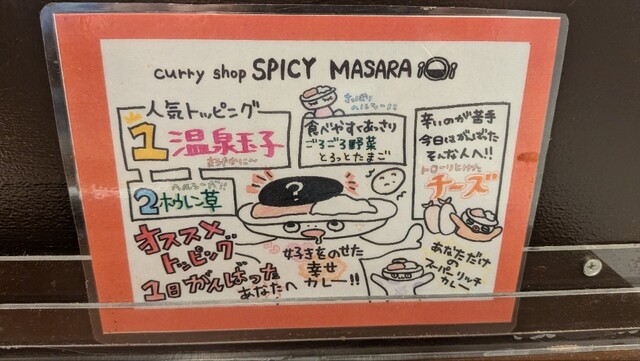 curry shop SPICY MASARA
人気トッピング
1 温泉玉子
まろやかに〜
2 ほうれん草
ヘルシーに!!
オススメ
トッピング
1日がんばった
あなたへ
さっぱり
ヘルシーに!!
食べやすくあっさり
ごろごろ野菜
とろっとたまご
?
好きをのせた
幸せ
カレー!!
辛いのが苦手
今日はがんばった
そんな人へ!!
トローリとけた
チーズ
あなただけ
の
スーパーリッチ
カレー